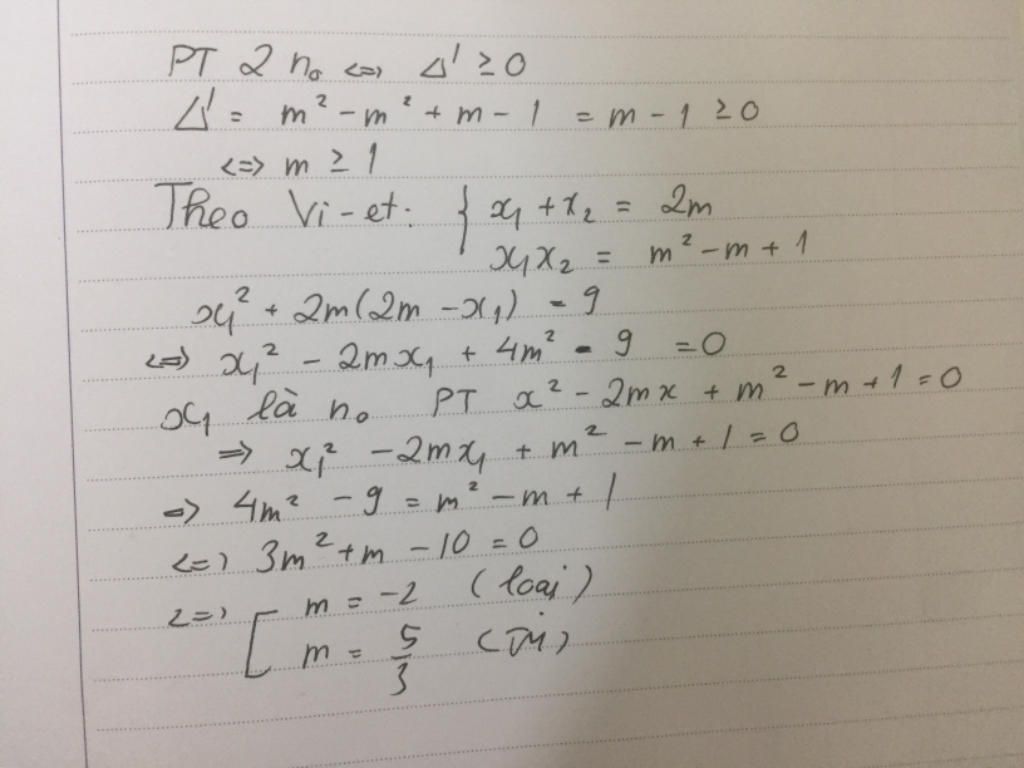 PT 2 n₀ <=> Δ' ≥ 0
Δ' = m² - m² + m - 1 = m - 1 ≥ 0
<=> m ≥ 1
Theo Vi-et: { x₁ + x₂ = 2m
x₁x₂ = m² - m + 1
x₁² + 2m(2m - x₁) = 9
<=> x₁² - 2mx₁ + 4m² - 9 = 0
x₁ là n₀ PT x² - 2mx + m² - m + 1 = 0
=> x₁² - 2mx₁ + m² - m + 1 = 0
=> 4m² - 9 = m² - m + 1
<=> 3m² + m - 10 = 0
<=> [ m = -2 (loại)
m = 5/3 (TM)